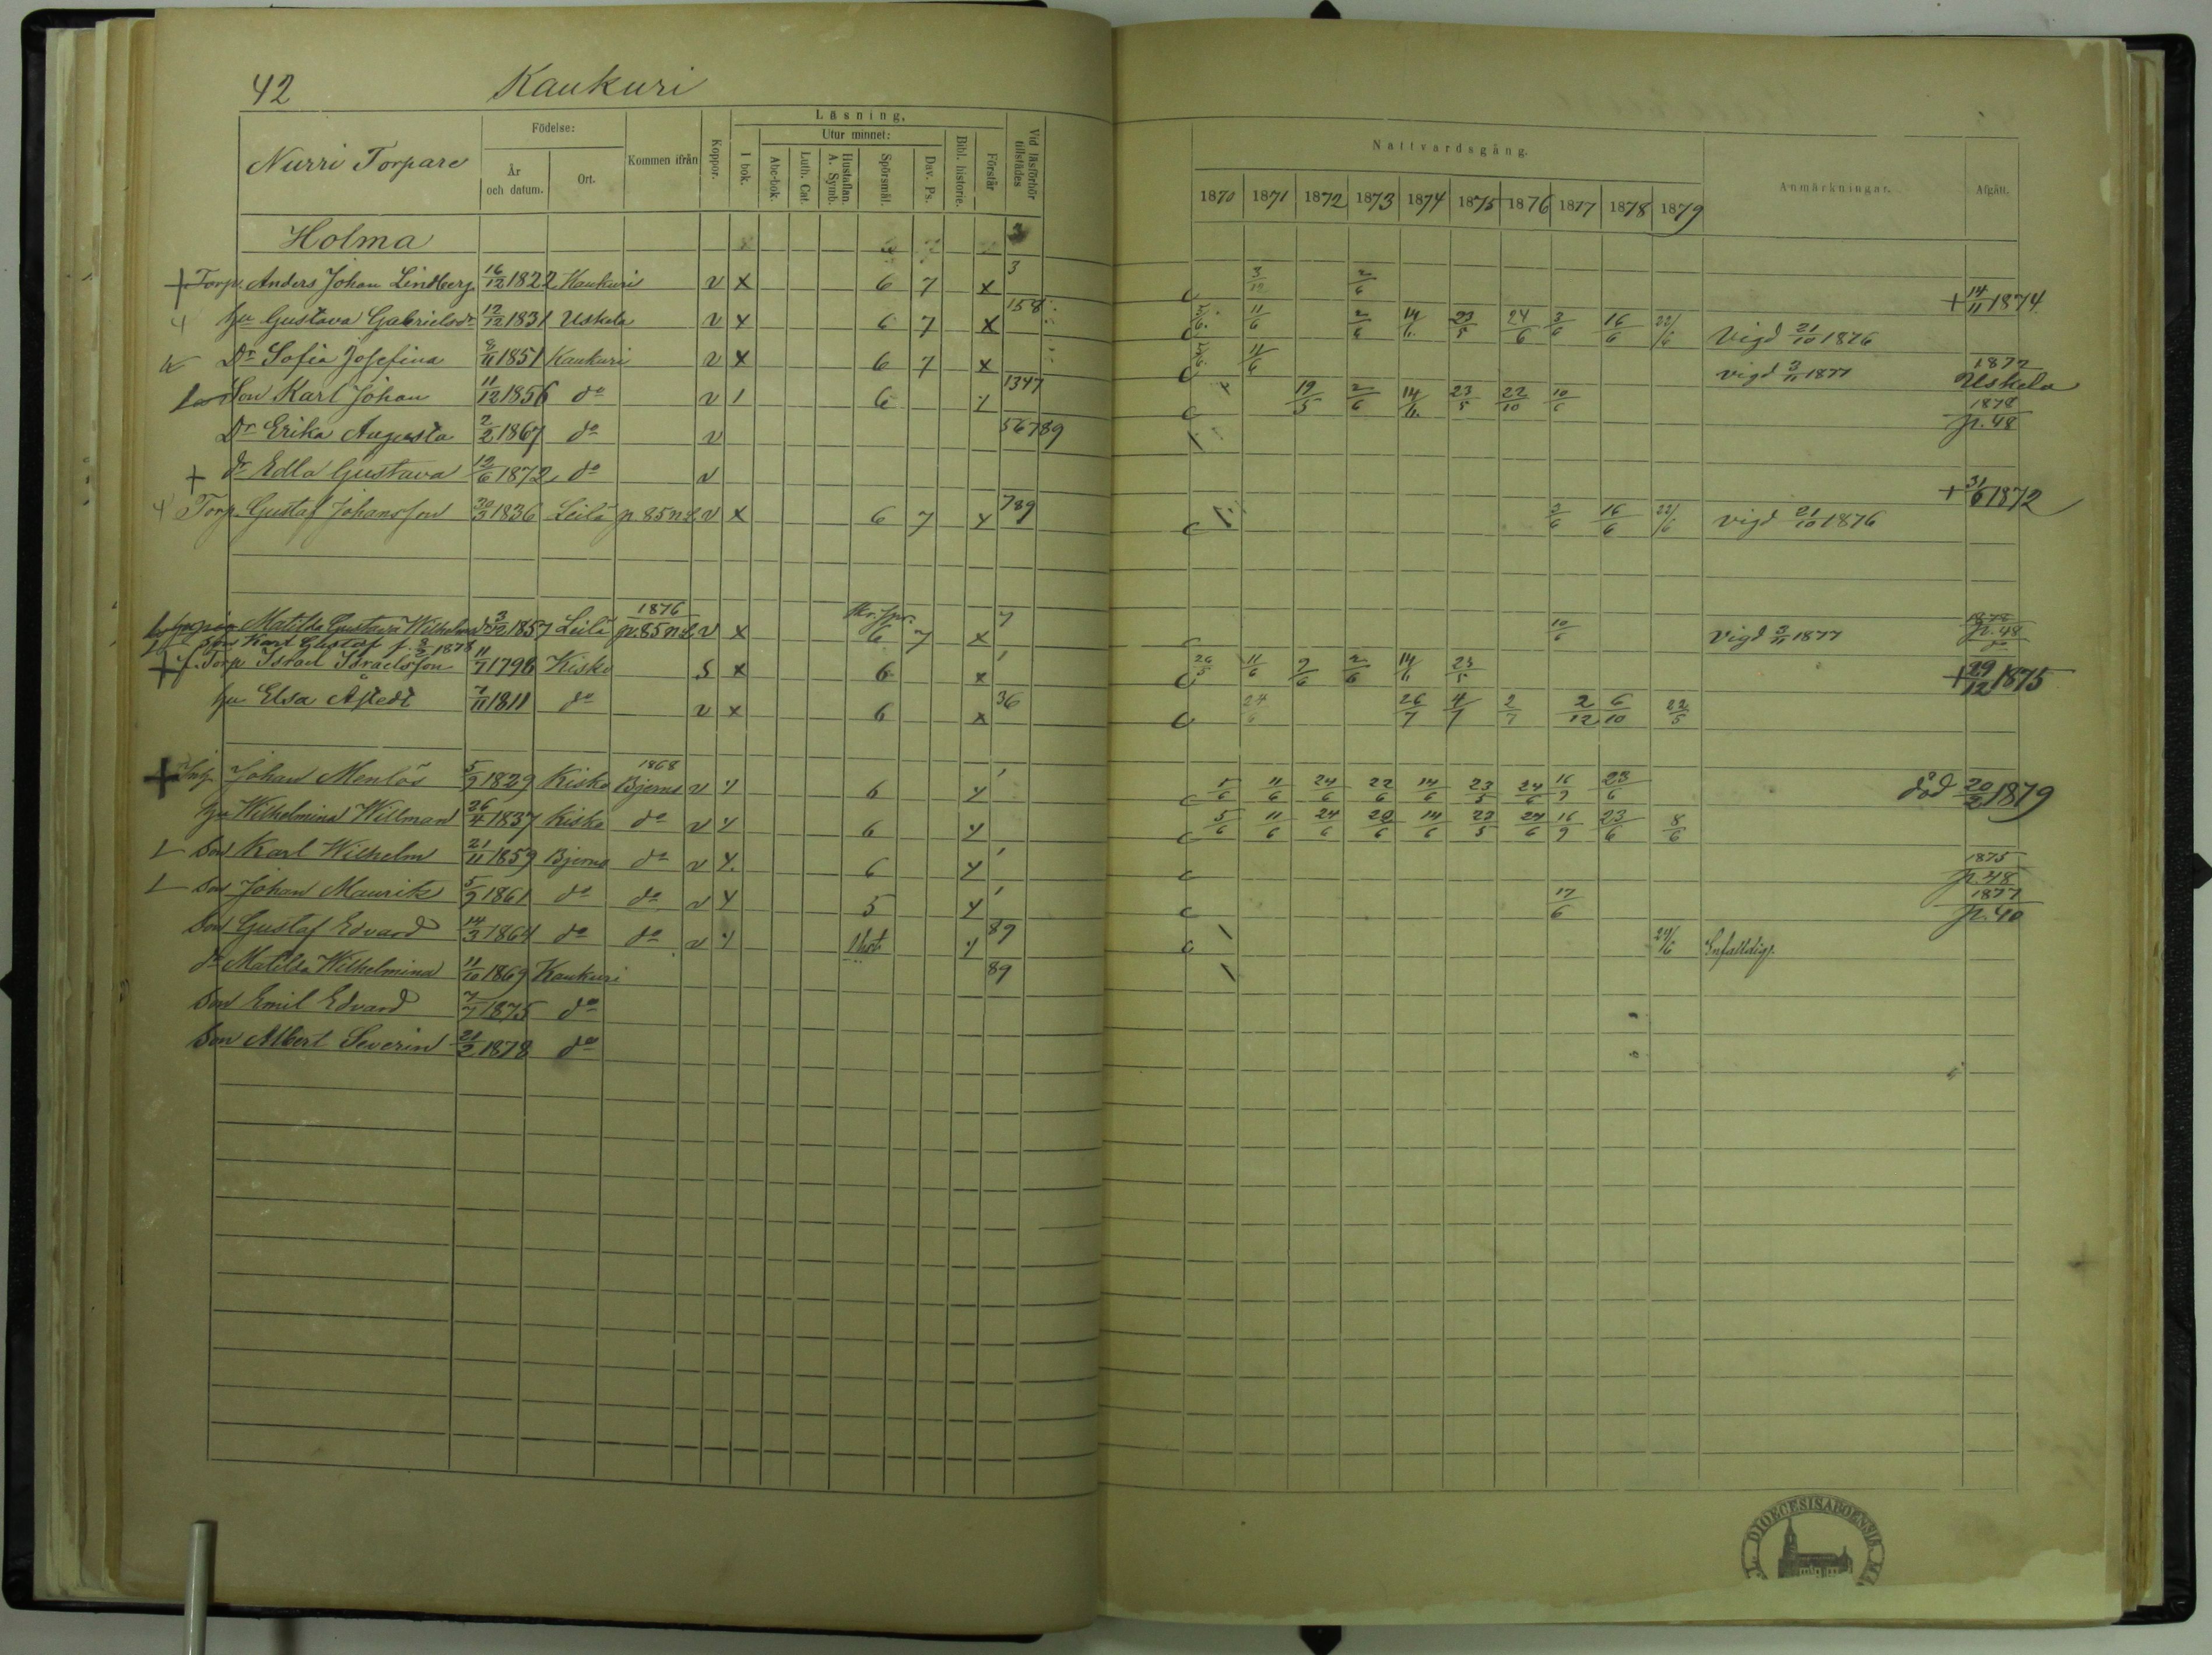 42 Kaukuri
Nurri Torpare
Födelse:
År och datum.
Ort.
Kommen ifrån
Koppor.
Läsning.
I bok.
Utur minnet:
Abc-bok.
Luth. Cat.
Hustaflan. A. Symb.
Spörsmål.
Dav. Ps.
Bibl. historie.
Förstår
Vid läsförhör tillstädes
Nattvardsgång.
1870 1871 1872 1873 1874 1875 1876 1877 1878 1879
Anmärkningar.
Afgått.
Holma
+ Torp. Anders Johan Lindberg 16/12 1822 Kaukuri v x 6 7 x 3 c 3/12 2/6 + 14/11 1874
hu Gustava Gabrielsdr 12/12 1831 Uskela v x 6 7 x 158 c 11/6 2/6 14/6 23/5 24/6 3/6 16/6 22/6 Vigd 21/10 1876
Dr Sofia Josefina 9/11 1851 Kaukuri v x 6 7 x c 11/6 vigd 3/11 1877 1872 Uskela
Son Karl Johan 11/12 1856 do v 1 6 1347 c 19/5 2/6 14/6 23/5 22/10 10/6 1878 p. 48
Dr Erika Augusta 2/2 1867 do v 56789
+ dr Edla Gustava 12/6 1872 do v + 31/6 1872
Torp. Gustaf Johansson 30/3 1836 Leilä p. 85 n.L. v x 6 7 x 789 c 3/6 16/6 22/6 vigd 21/10 1876
Matilda Gustava Wilhelmsd 3/12 1857 Leilä 1876 p. 85 n.L. v x 6 7 x 7 c 10/6 Vigd 3/11 1877 1878 p. 48
Son Karl Gustaf f. 3/2 1878
+ f. Torp Israel Israelsson 11/7 1798 Kisko S x 6 x 1 c 26/5 11/6 9/6 2/6 14/6 23/5 + 29/12 1875
hu Elsa Åstedt 7/11 1811 do v x 6 x 36 c 24/6 26/7 4/7 2/7 2/12 6/10 22/5
+ Inh. Johan Menlös 5/9 1829 Kisko 1868 Bjerno v y 6 y c 5/6 11/6 24/6 22/6 14/6 23/5 24/6 16/9 23/6 död 20/2 1879
hu Wilhelmina Willman 26/4 1837 Kisko do v y 6 y c 5/6 11/6 24/6 20/6 14/6 23/5 24/6 16/9 23/6 8/6
Son Karl Wilhelm 21/11 1859 Bjerno do v y 6 y c 1875 p. 48
Son Johan Maurits 5/9 1861 do do v y 5 y c 17/6 1877 p. 40
Son Gustaf Edvard 14/3 1864 do do v 89 c 29/6 Enfaldig.
dr Matilda Wilhelmina 11/10 1869 Kaukuri 89
Son Emil Edvard 7/7 1875 do
Son Albert Severin 21/2 1878 do
DIOECESIS ABOENSIS